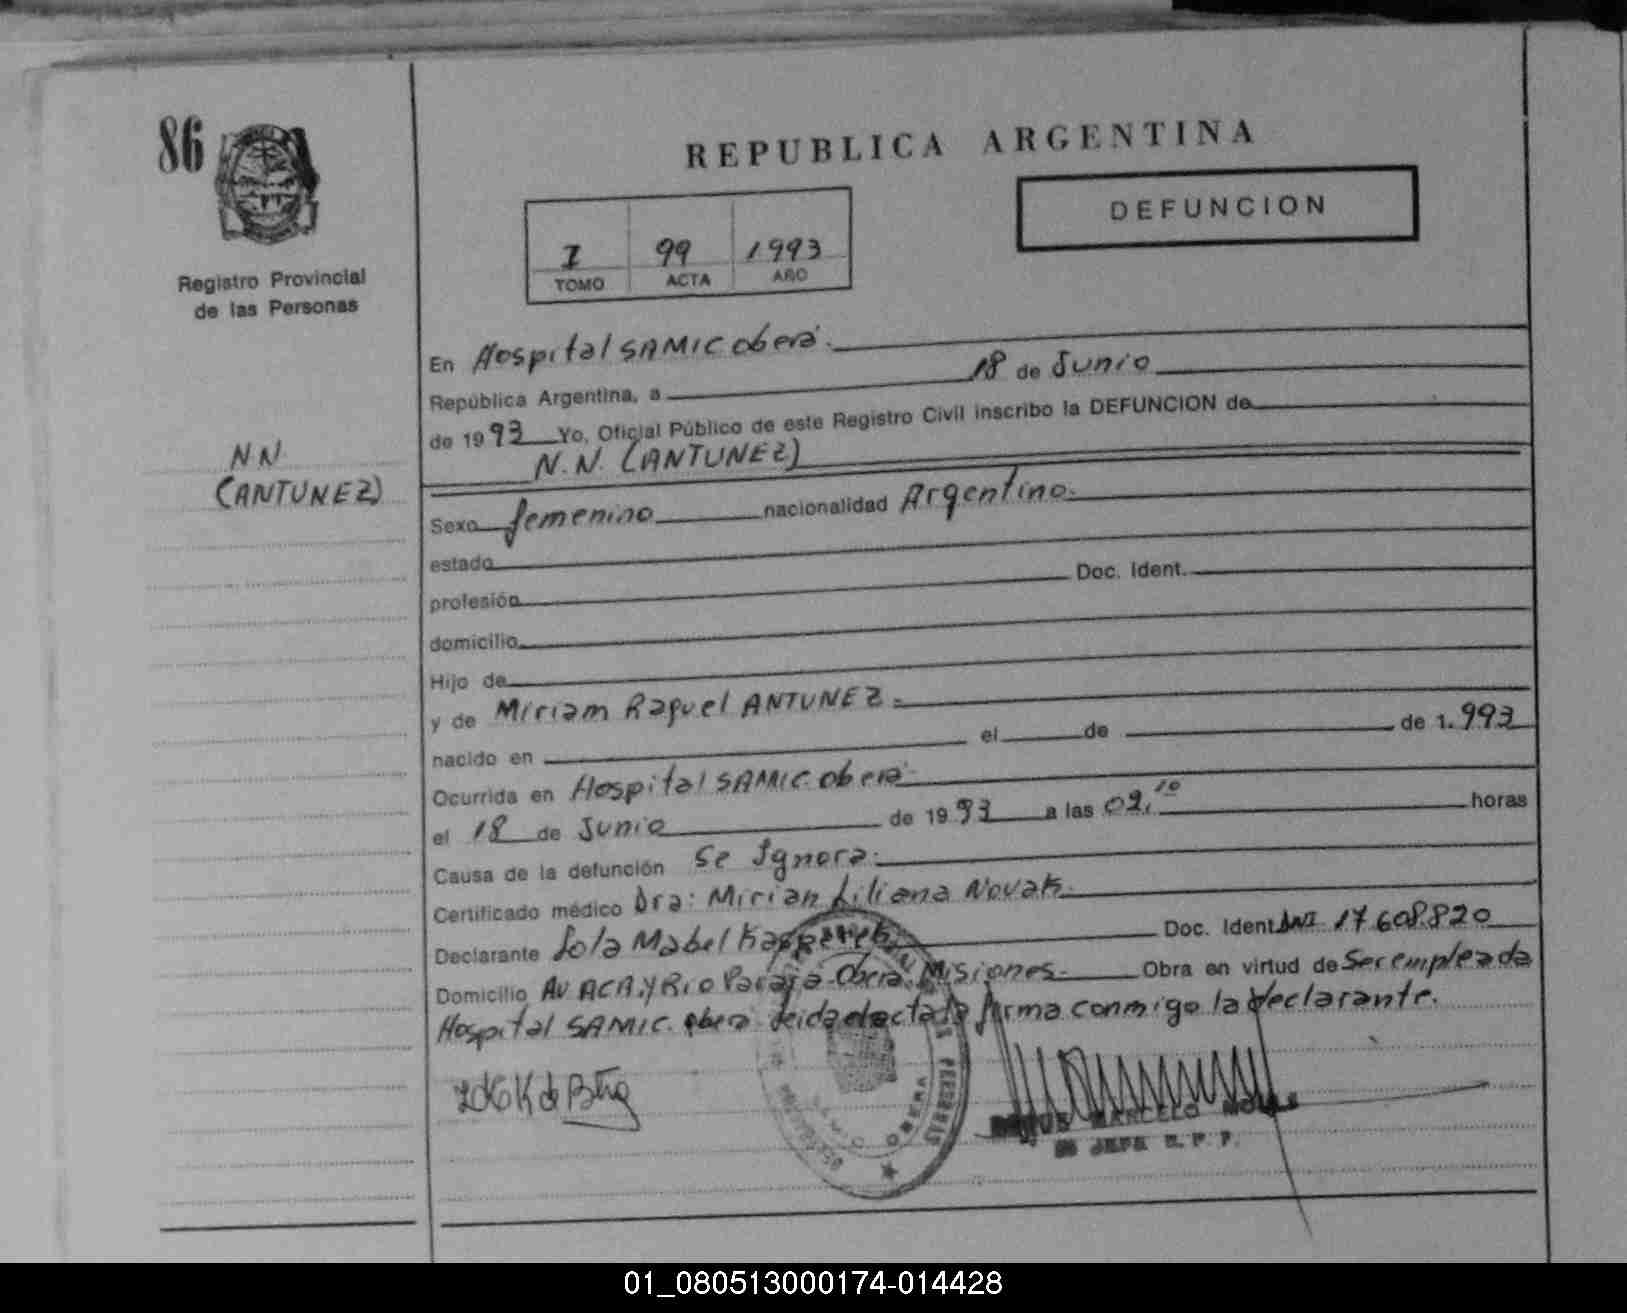 86
REPUBLICA ARGENTINA
DEFUNCION
I 99 1993
TOMO ACTA AÑO
Registro Provincial
de las Personas
NN
(ANTUNEZ)
En Hospital SAMIC oberá.
República Argentina, a 18 de Junio
de 1993 Yo, Oficial Público de este Registro Civil inscribo la DEFUNCION de
N.N. (ANTUNEZ)
Sexo femenino nacionalidad Argentino.
estado
profesión Doc. Ident.
domicilio
Hijo de
y de Miriam Raquel ANTUNEZ.
nacido en el de de 1.993
Ocurrida en Hospital SAMIC oberá
el 18 de Junio de 1993 a las 02,10 horas
Causa de la defunción Se Ignora.
Certificado médico Dra: Mirian Liliana Novak.
Declarante Lola Mabel Doc. Ident DNI 17.608.820
Domicilio AV ACA. y Rio Paraná Oberá. Misiones. Obra en virtud de Ser empleada
Hospital SAMIC. oberá leida el acta firma conmigo la declarante.
MARCELO
JEFE R. P. P.
01_080513000174-014428